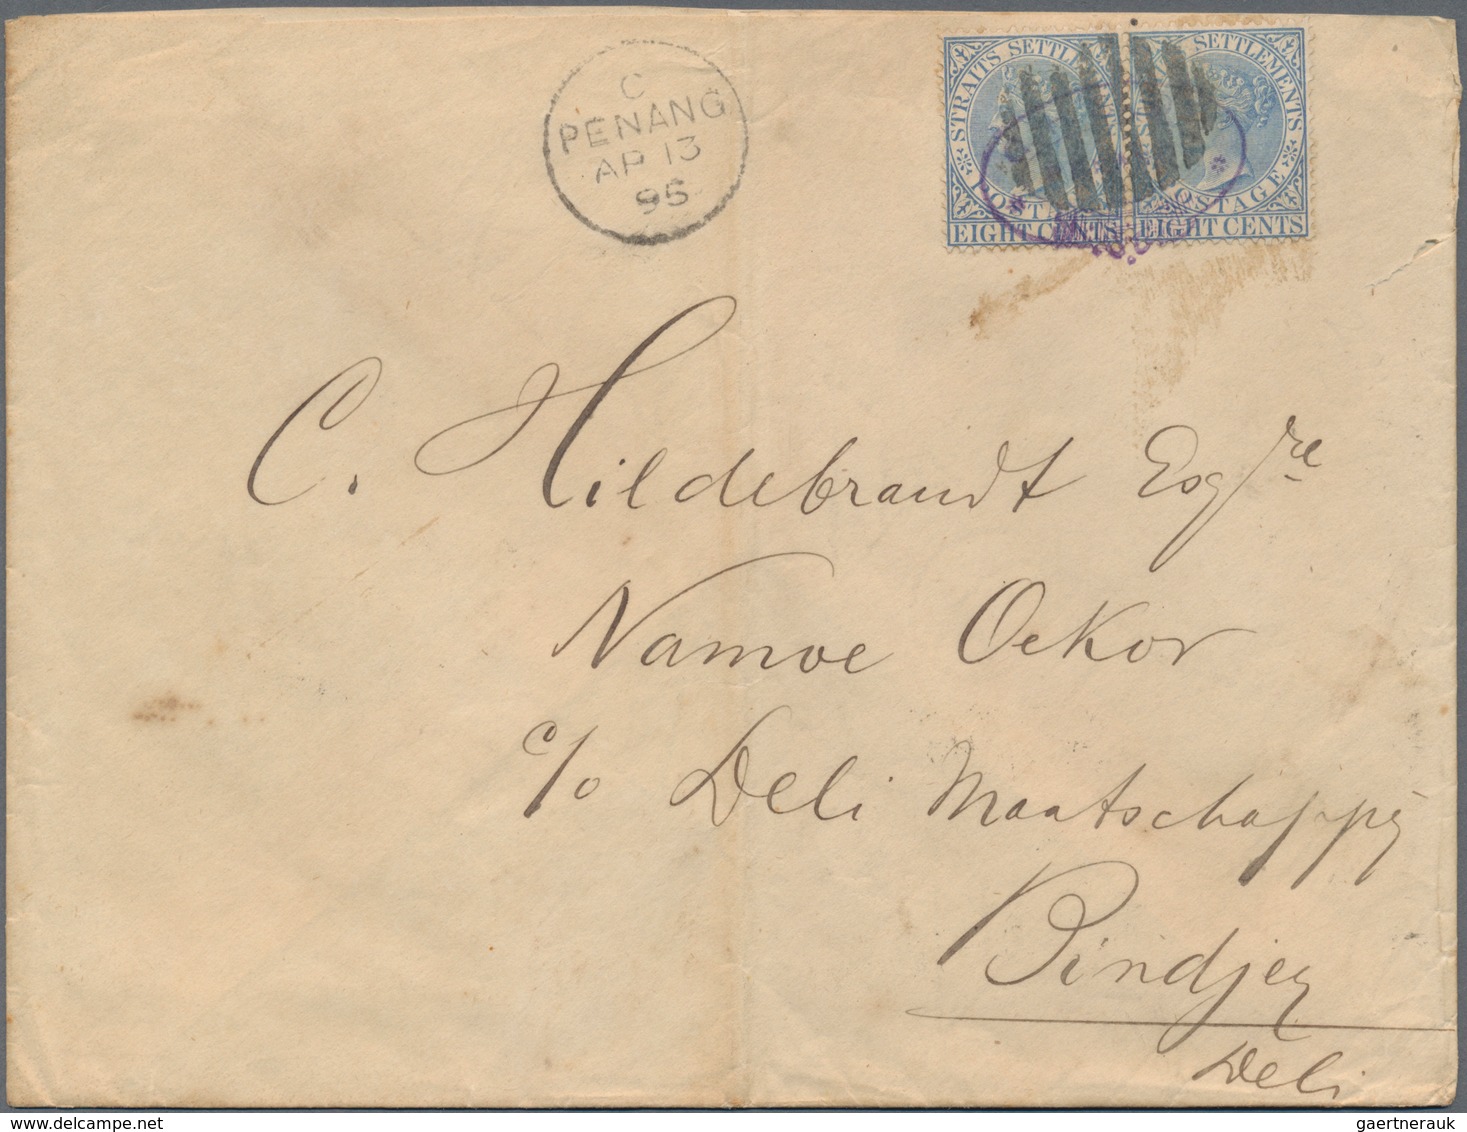 C
PENANG
AP 13
95
STRAITS SETTLEMENTS
POSTAGE
EIGHT CENTS
SETTLEMENTS
POSTAGE
EIGHT CENTS
C. Hildebrandt Esqre
Namoe Oekor
c/o Deli Maatschappÿ
Bindjey
Deli
gaertnerauk